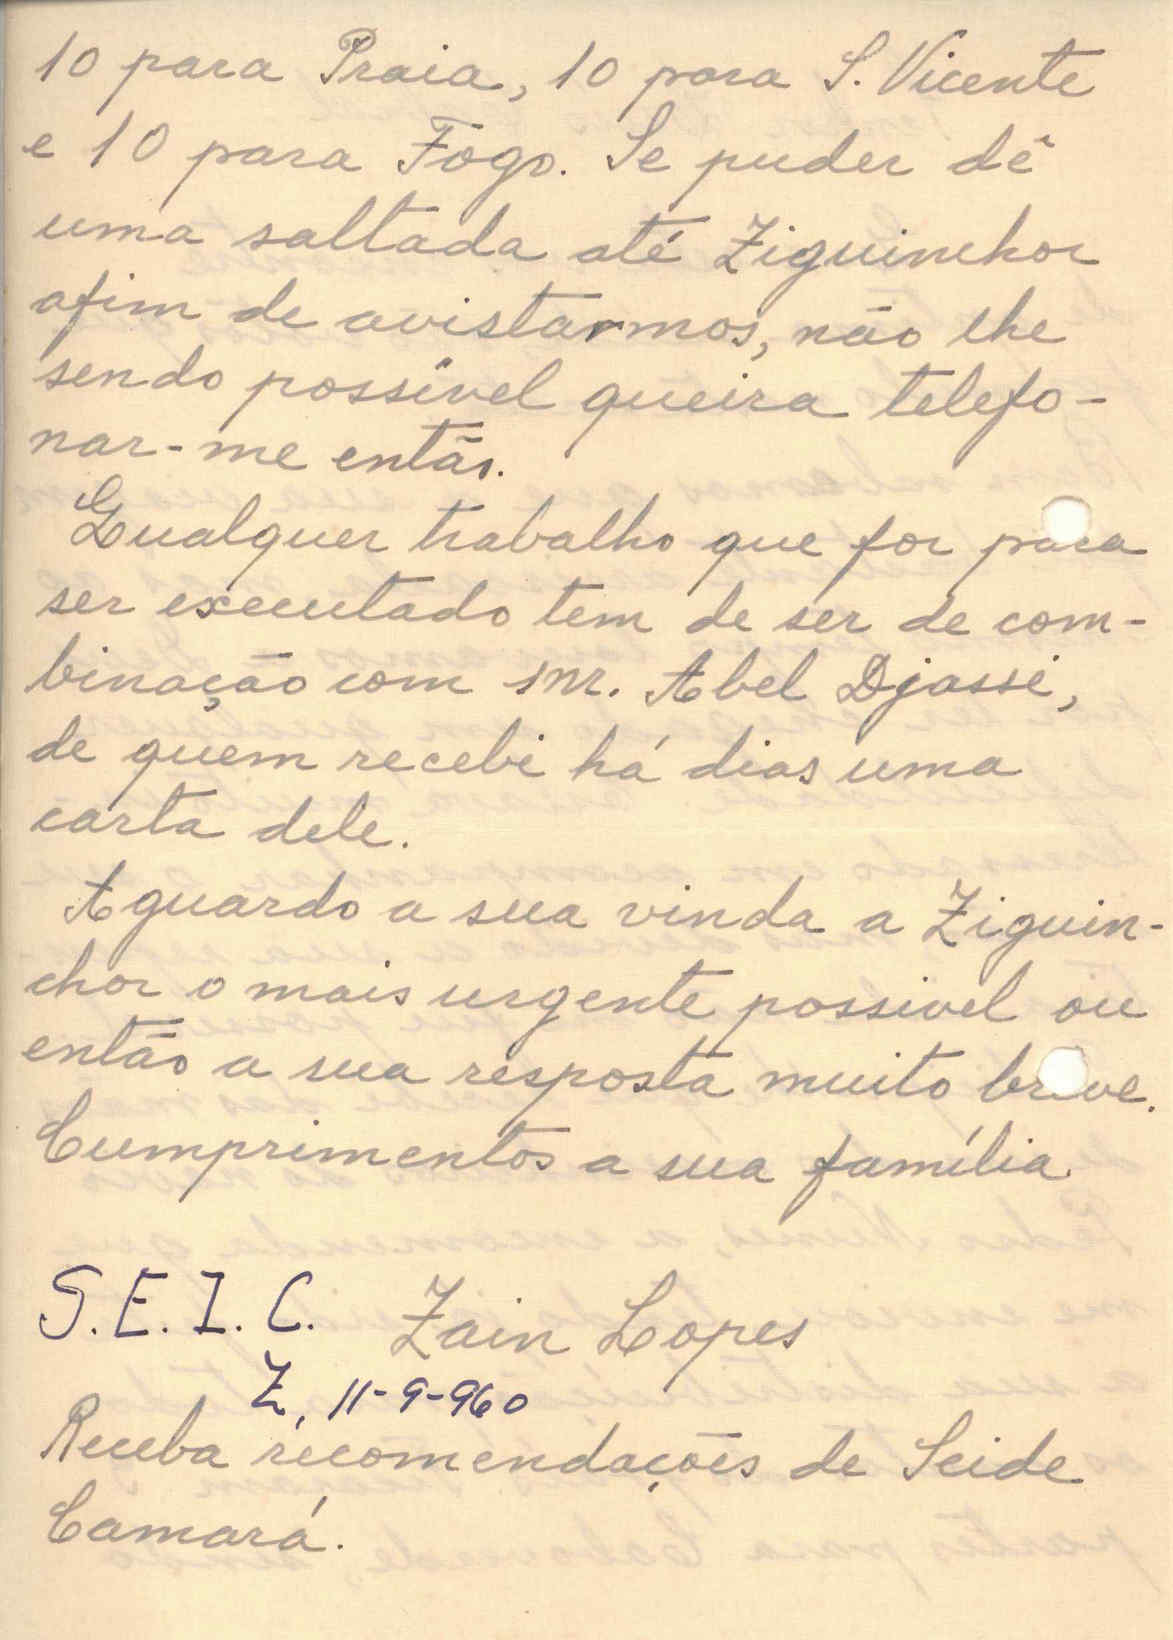 10 para Praia, 10 para S. Vicente
e 10 para Fogo. Se puder dê
uma saltada até Ziguinchor
afim de avistarmos, não lhe
sendo possível queira telefo-
nar-me então.
Qualquer trabalho que for para
ser executado tem de ser de com-
binação com snr. Abel Djassi,
de quem recebi há dias uma
carta dele.
Aguardo a sua vinda a Ziguin-
chor o mais urgente possivel ou
então a sua resposta muito breve.
Cumprimentos a sua família
S.E.I.C. Zain Lopes
Z, 11-9-960
Receba recomendações de Seide
Camará.